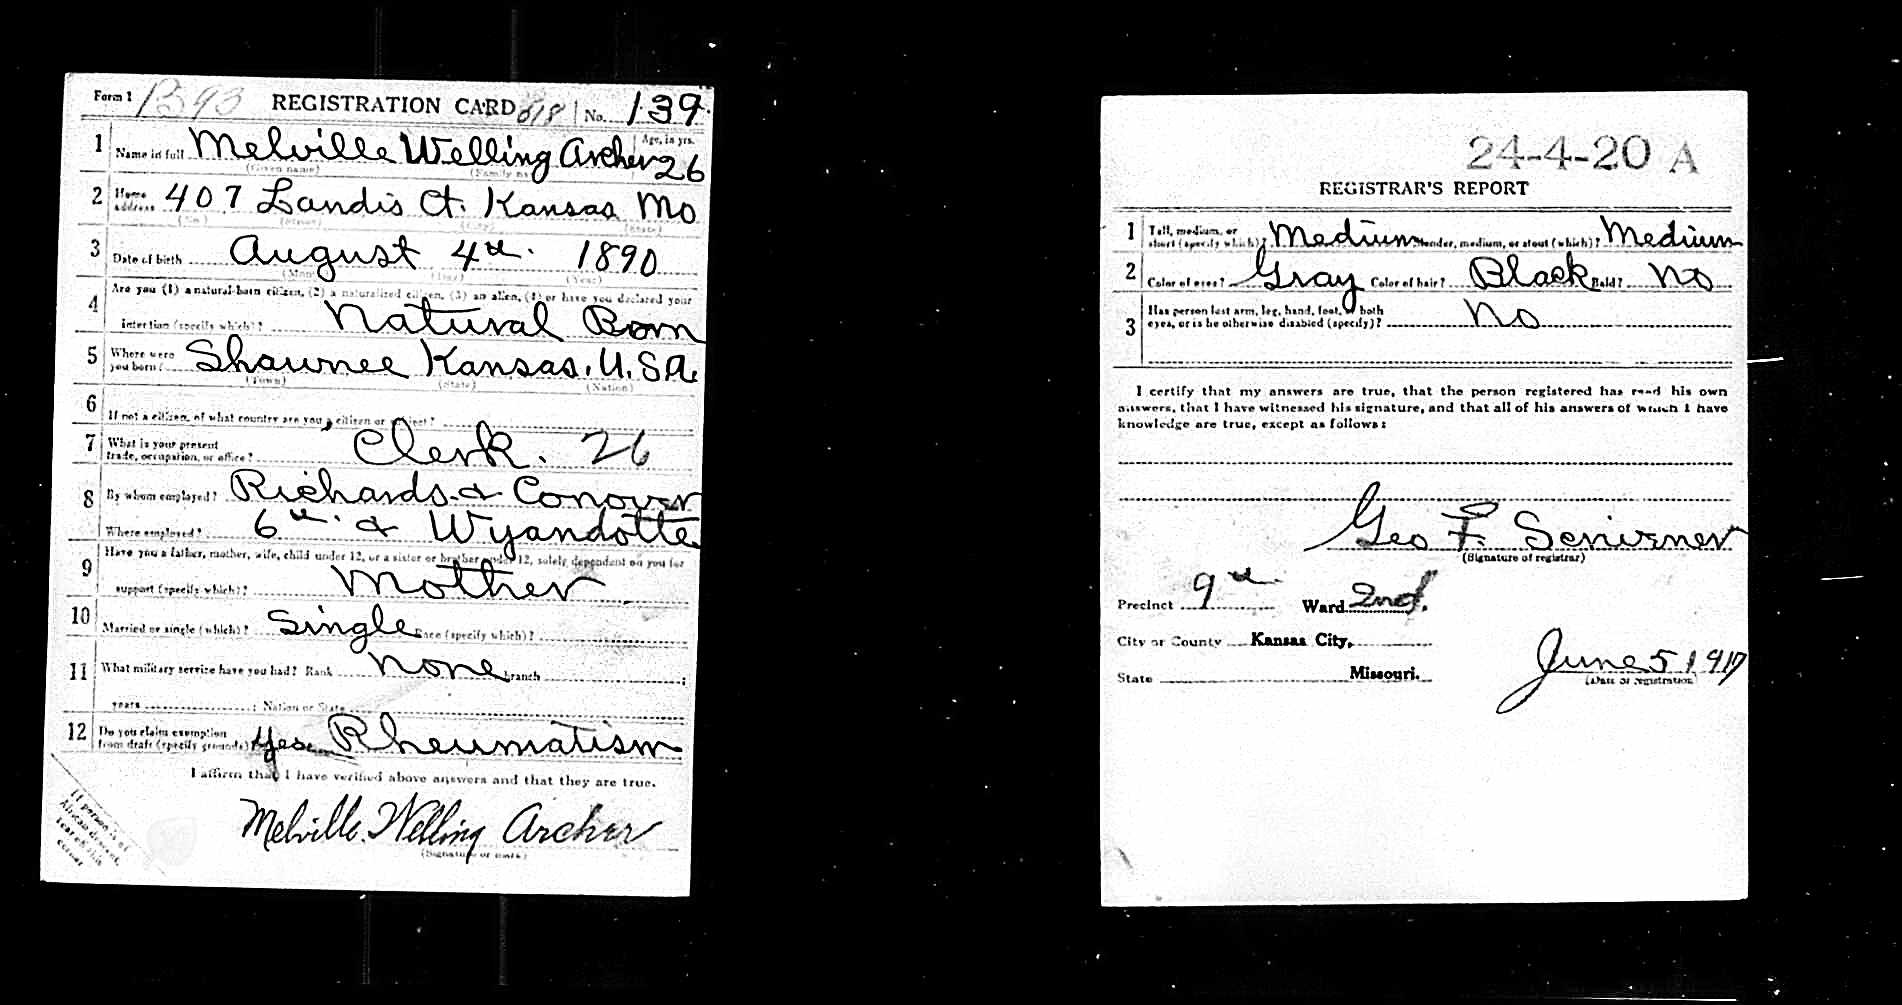 Form 1 1393 REGISTRATION CARD 618 No. 139
1 Name in full Melville Welling Archer Age, in yrs. 26
(Given name) (Family name)
2 Home address 407 Landis Ct. Kansas Mo
(No.) (Street) (City) (State)
3 Date of birth August 4th 1890
(Month) (Day) (Year)
4 Are you (1) a natural-born citizen, (2) a naturalized citizen, (3) an alien, (4) or have you declared your
intention (specify which)? Natural Born
5 Where were you born? Shawnee Kansas. U.S.A.
(Town) (State) (Nation)
6 If not a citizen, of what country are you a citizen or subject?
7 What is your present trade, occupation, or office? Clerk. 26
8 By whom employed? Richards & Conover
Where employed? 6th & Wyandotte
9 Have you a father, mother, wife, child under 12, or a sister or brother under 12, solely dependent on you for
support (specify which)? Mother
10 Married or single (which)? Single Race (specify which)?
11 What military service have you had? Rank None branch
years ; Nation or State
12 Do you claim exemption from draft (specify grounds)? Yes Rheumatism
I affirm that I have verified above answers and that they are true.
Melville Welling Archer
(Signature or mark)
If person is of
African descent,
tear off this
corner
24-4-20 A
REGISTRAR'S REPORT
1 Tall, medium, or short (specify which)? Medium Slender, medium, or stout (which)? Medium
2 Color of eyes? Gray Color of hair? Black Bald? No
3 Has person lost arm, leg, hand, foot, or both
eyes, or is he otherwise disabled (specify)? No
I certify that my answers are true, that the person registered has read his own
answers, that I have witnessed his signature, and that all of his answers of which I have
knowledge are true, except as follows:
Geo F. Scrivener
(Signature of registrar)
Precinct 9th Ward 2nd.
City or County Kansas City,
State Missouri.
June 5 1917
(Date of registration)